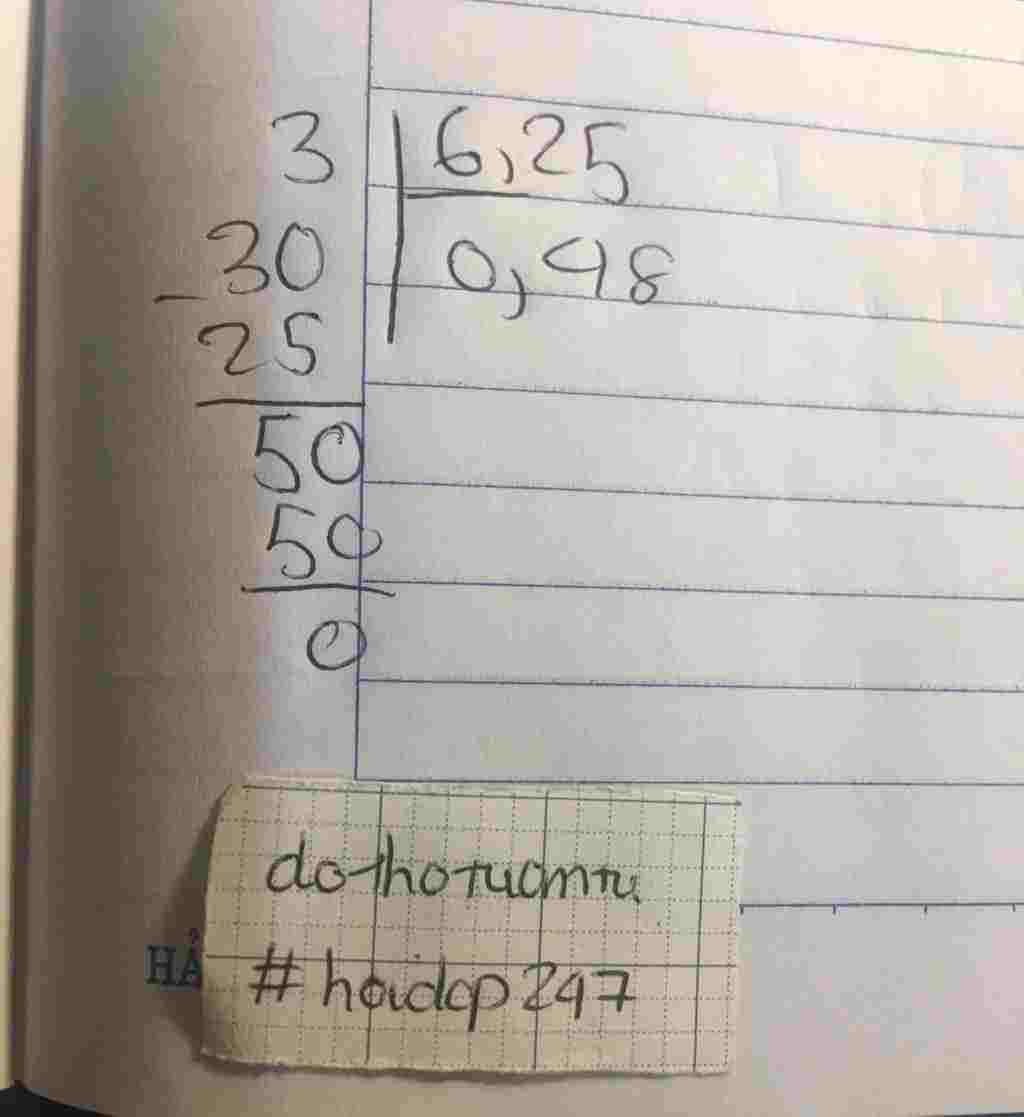 3 6,25
30 0,48
- 
25
50
50
0
dothotuamtu
#hoidap247
HÀ